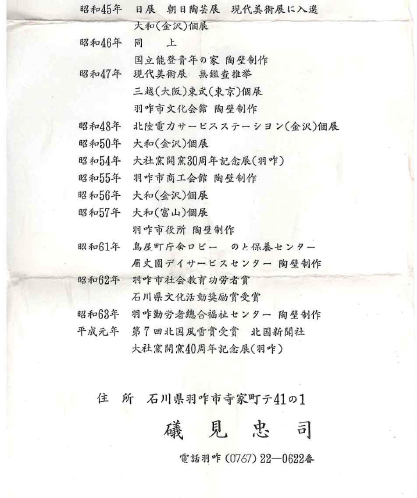 昭和45年 日展 朝日陶芸展 現代美術展に入選
大和(金沢)個展
昭和46年 同 上
国立能登青年の家 陶壁制作
昭和47年 現代美術展 無鑑査推挙
三越(大阪)東武(東京)個展
羽咋市文化会館 陶壁制作
昭和48年 北陸電力サービスステーション(金沢)個展
昭和50年 大和(金沢)個展
昭和54年 大社窯開窯30周年記念展(羽咋)
昭和55年 羽咋市商工会館 陶壁制作
昭和56年 大和(金沢)個展
昭和57年 大和(富山)個展
羽咋市役所 陶壁制作
昭和61年 鳥屋町庁舎ロビー のと保養センター
眉丈園デイサービスセンター 陶壁制作
昭和62年 羽咋市社会教育功労者賞
石川県文化活動奨励賞受賞
昭和63年 羽咋勤労者総合福祉センター 陶壁制作
平成元年 第7回北国風雪賞受賞 北国新聞社
大社窯開窯40周年記念展(羽咋)
住 所 石川県羽咋市寺家町テ41の1
礒見忠司
電話羽咋(0767)22-0622番